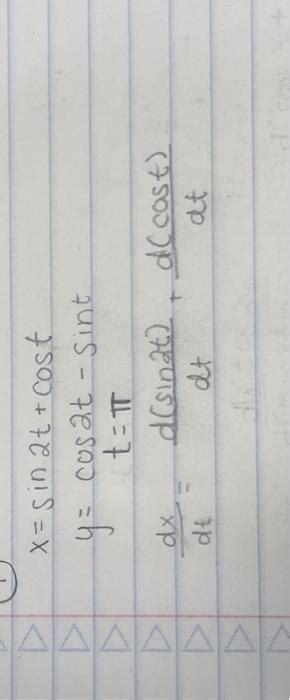 1
x = sin 2t + cos t
y = cos 2t - sin t
t = π
dx/dt = d(sin 2t)/dt + d(cos t)/dt